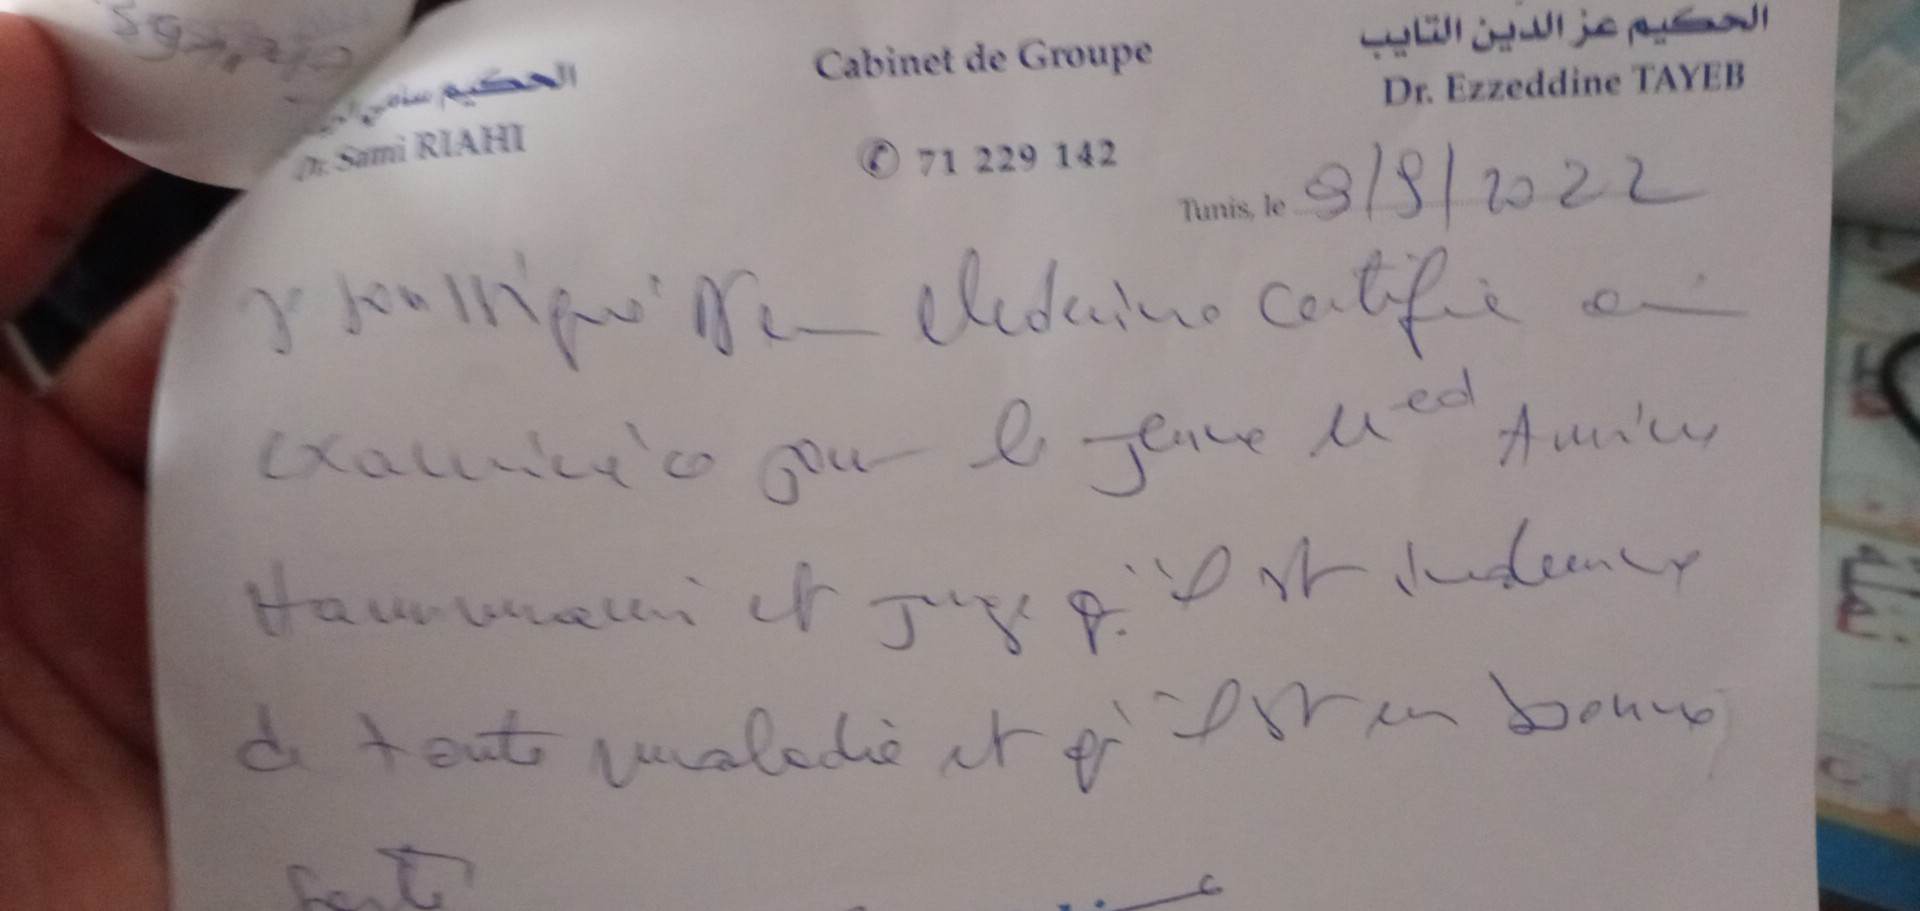 الحكيم سامي
Dr. Sami RIAHI
Cabinet de Groupe
71 229 142
الحكيم عز الدين التايب
Dr. Ezzeddine TAYEB
Tunis, le 9/9/2022
J soussigné Dr en Medecine certifie avoir
examiné ce jour le jeune Med Amine
Hammami et juge q'il est indemne
de toute maladie et q'il est en bonne
santé